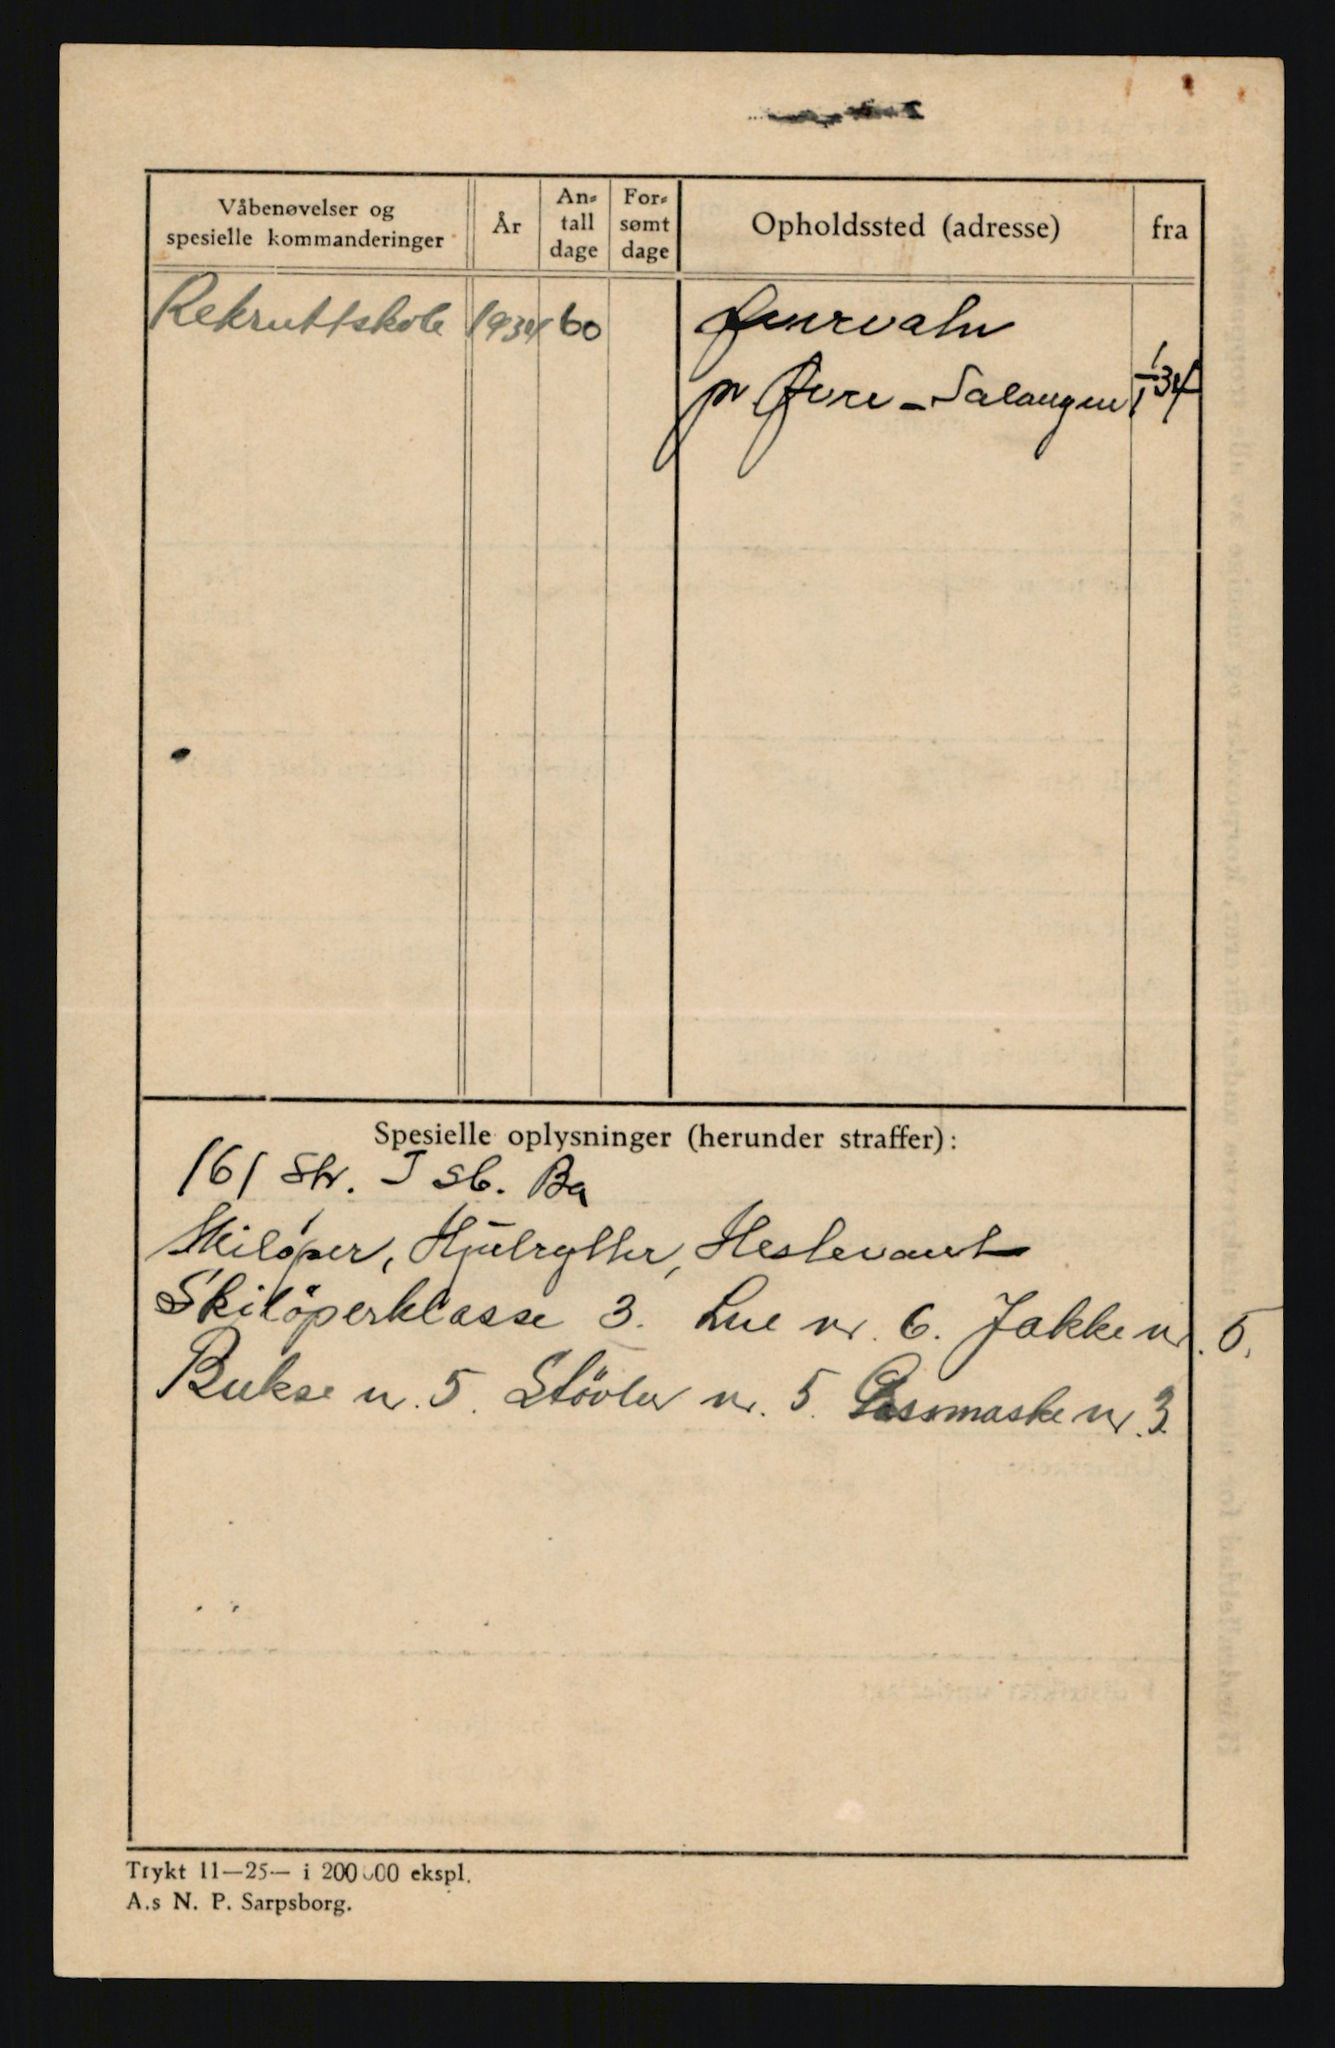 Våbenøvelser og spesielle kommanderinger
År
Antall dage
Forsømt dage
Opholdssted (adresse)
fra
Rekruttskole 1934 60
Furevatn
pr Øvre-Salangen 1/1 34
Spesielle oplysninger (herunder straffer):
161 Str. I Sb. Ba
Skiløper, Hjulrytter, Hestevant
Skilöperklasse 3. Lue nr. 6. Jakke nr. 5.
Bukse nr. 5. Stövler nr. 5. Gassmaske nr. 3.
Trykt 11—25— i 200 000 ekspl.
A.s N. P. Sarpsborg.